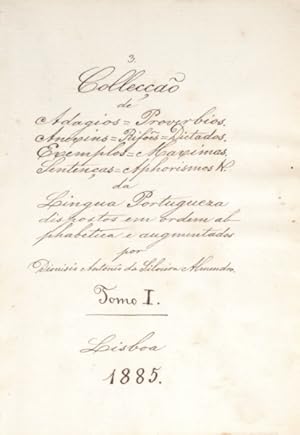 3.
Collecção
de
Adagios = Proverbios,
Anexins = Rifões = Dictados,
Exemplos = Maximas,
Sentenças = Aphorismos &.
da
Lingua Portugueza
dispostos em ordem al
phabetica e augmentados
por
Dionisio Antonio da Silveira Almendro.
Tomo I.
Lisboa
1885.